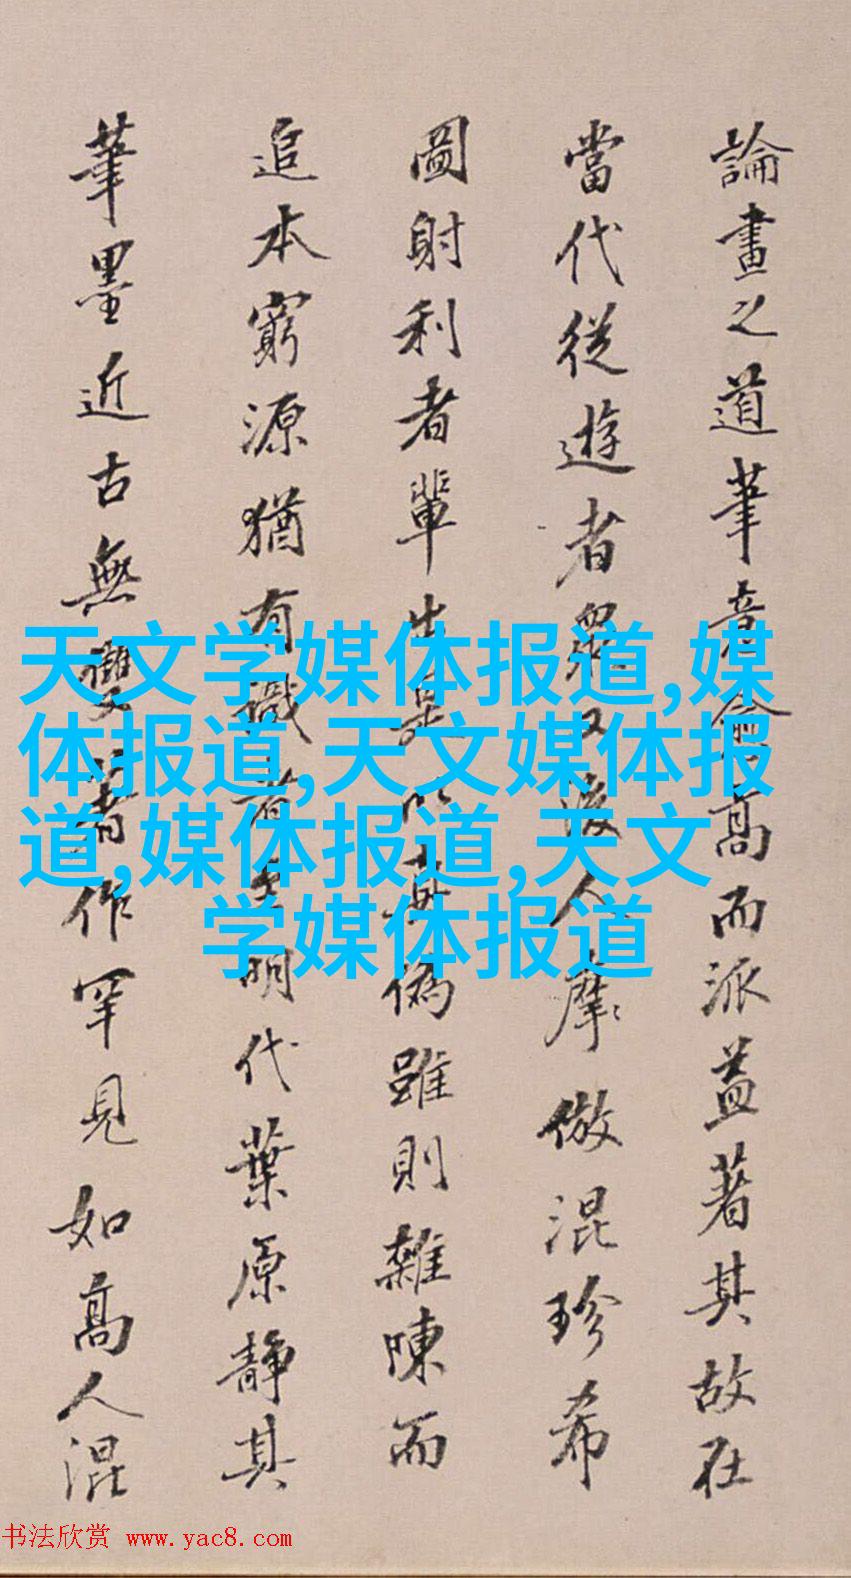 論畫之道筆意愈高而派益著其故在
當代從遊者眾又後人摩倣混珍希
圖射利者輩出是以真偽雖則雜陳而
追本窮源猶有識者至明代葉原靜其
筆墨近古無雙著作罕見如高人混
天文学媒体报道,媒
体报道,天文媒体报
道,媒体报道,天文
学媒体报道
书法欣赏 www.yac8.com